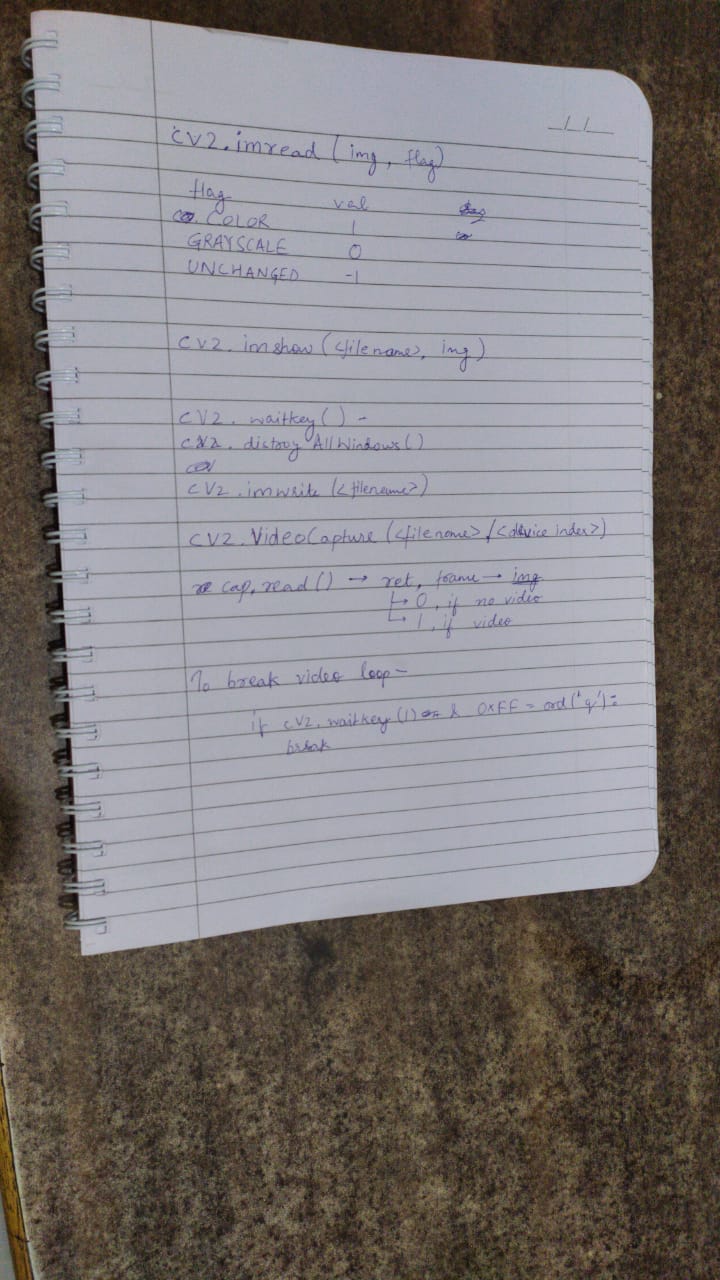 cv2.imread (img, flag)
flag val
COLOR 1
GRAYSCALE 0
UNCHANGED -1
cv2.imshow (<filename>, img)
cv2.waitkey() -
cv2.distroy AllWindows()
cv2.imwrite (<filename>)
cv2.VideoCapture (<filename>/<device index>)
cap.read() → ret, frame → img
↳ 0, if no video
↳ 1, if video
To break video loop -
if cv2.waitkey(1) & 0xFF = ord('q'):
break